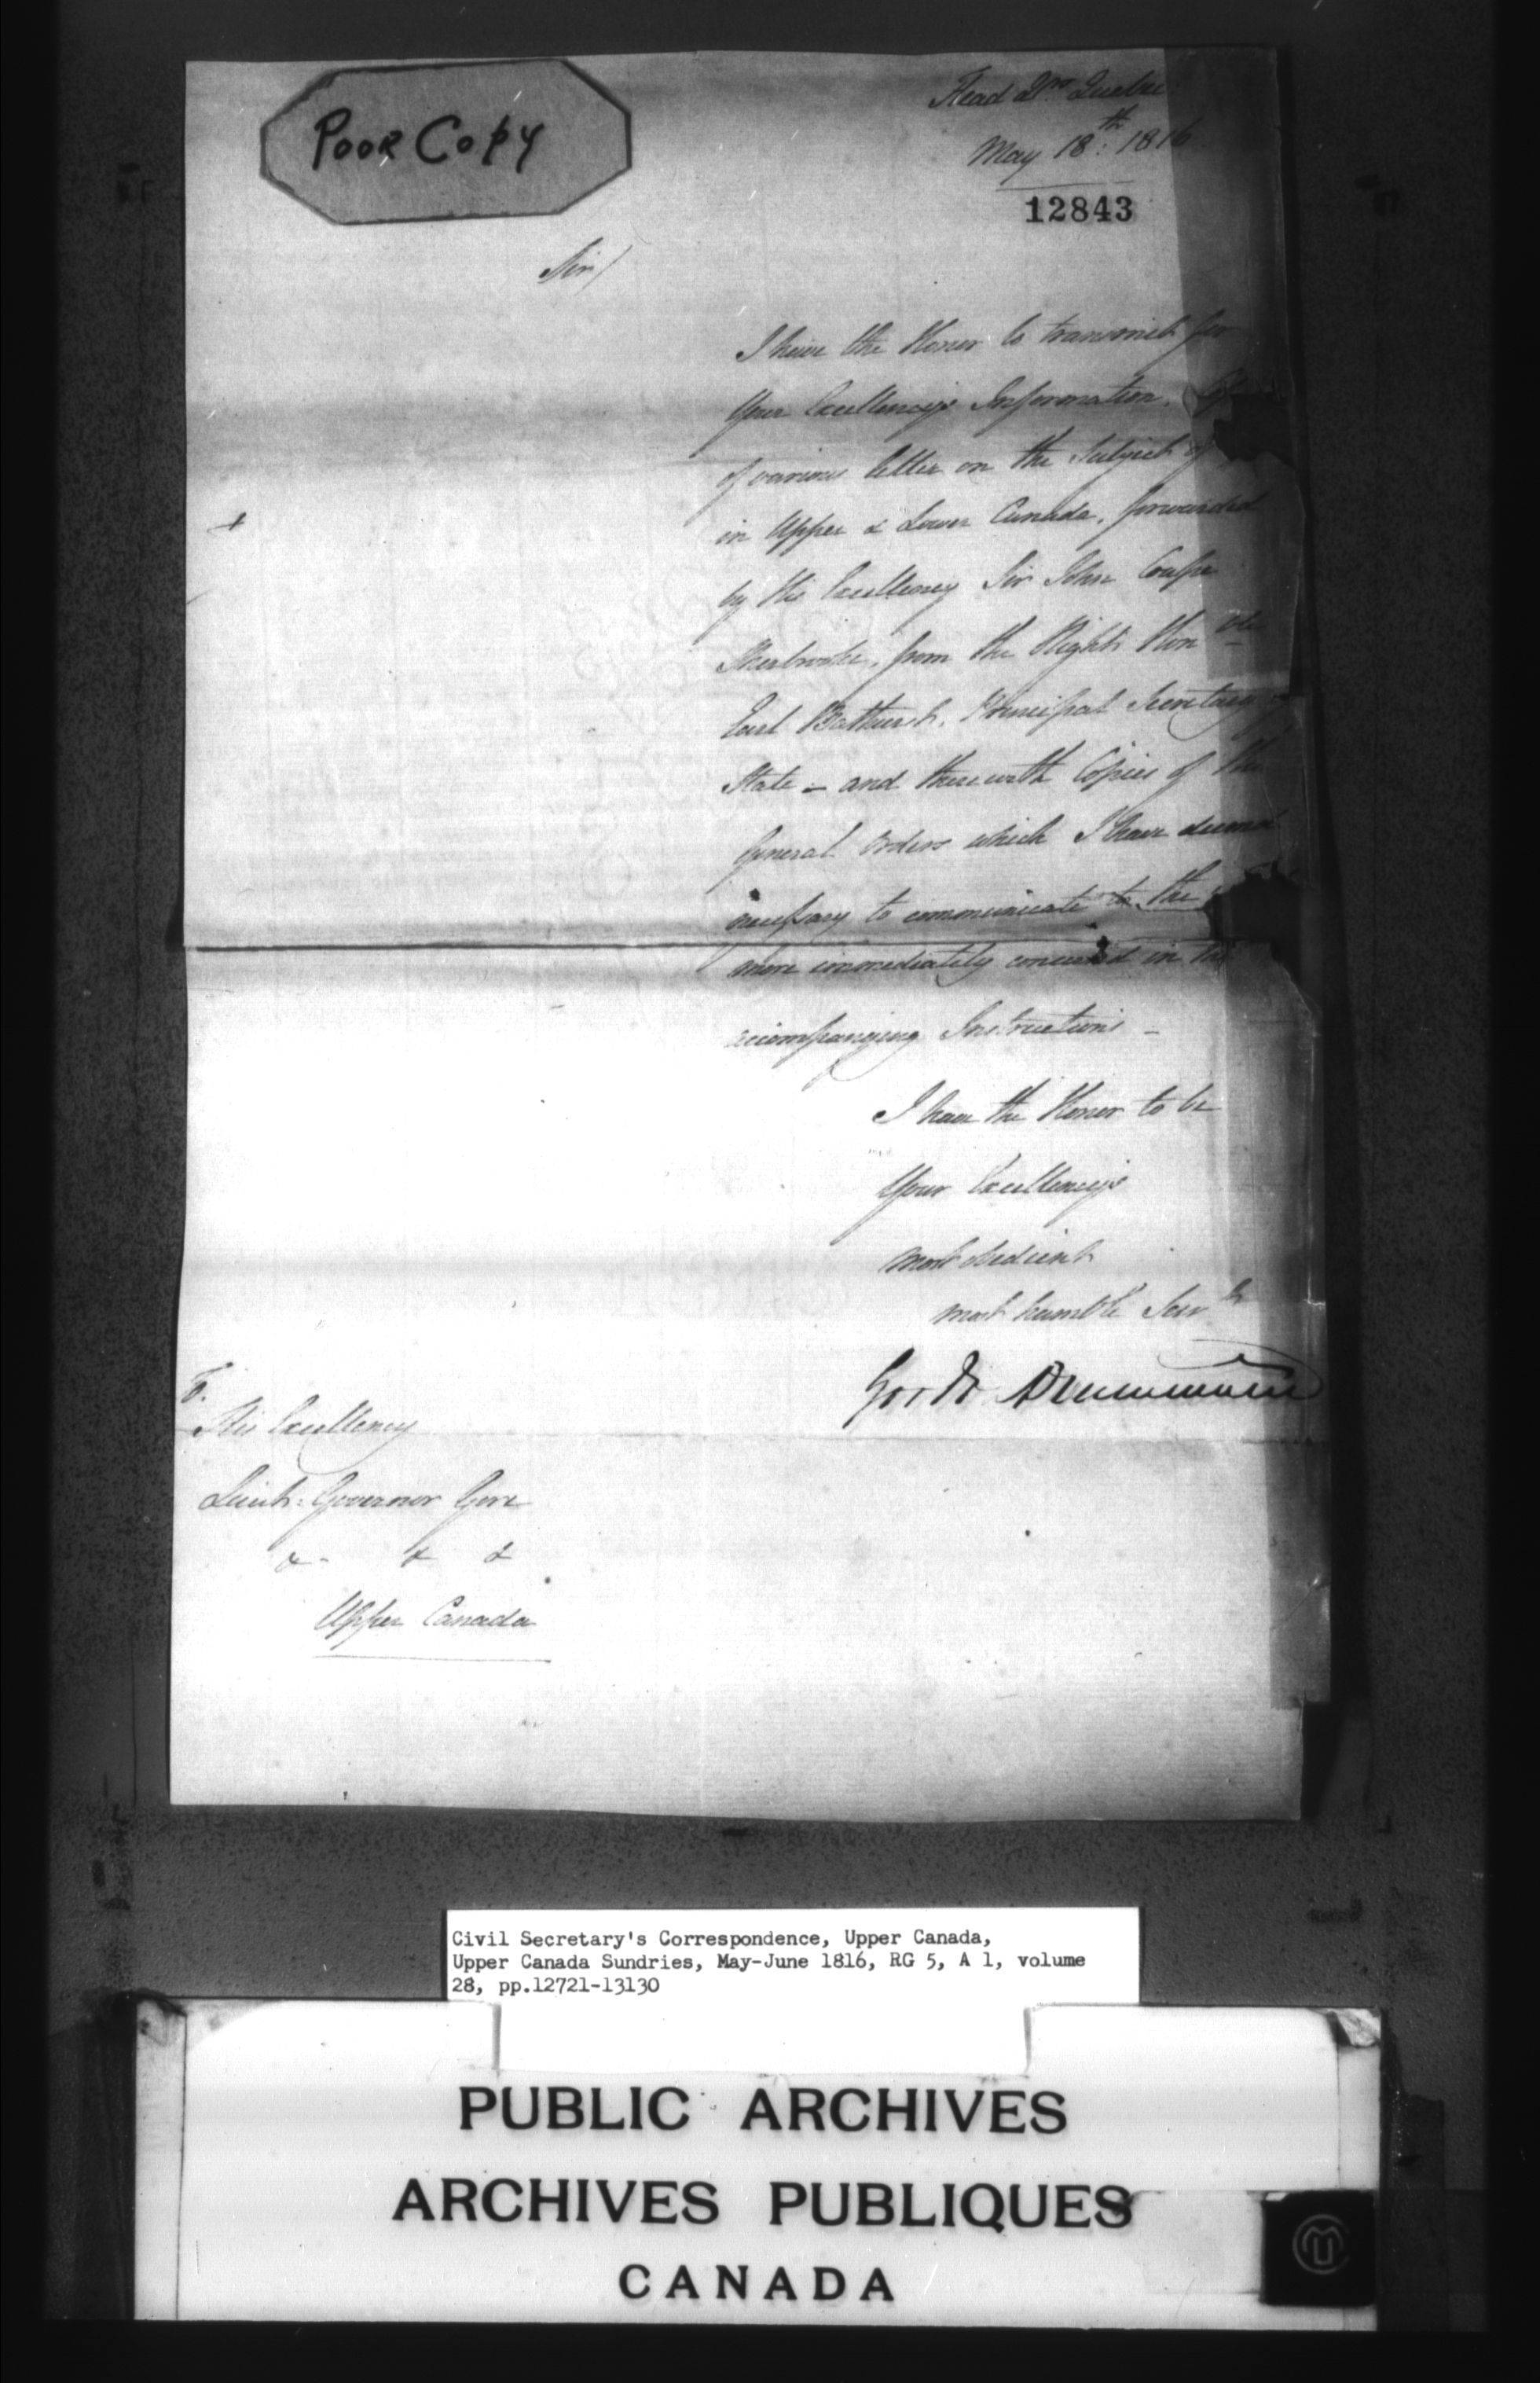 POOR COPY
Head Qrs Quebec
May 18th: 1816
12843
Sir/
I have the Honor to transmit for
Your Excellency's Information,
of various letter on the Subject of
in Upper & Lower Canada, forwarded
by His Excellency Sir John Coape
Sherbrooke, from the Right Honble
Earl Bathurst, Principal Secretary
State - and therewith Copies of the
General Orders which I have deemed
necessary to communicate to the
more immediately concerned in the
accompanying Instructions -
I have the Honor to be
Your Excellency's
most obedient
most humble Servt
Gordon Drummond
To.
His Excellency
Lieut: Governor Gore
&- & &
Upper Canada
Civil Secretary's Correspondence, Upper Canada,
Upper Canada Sundries, May-June 1816, RG 5, A 1, volume
28, pp.12721-13130
PUBLIC ARCHIVES
ARCHIVES PUBLIQUES
CANADA